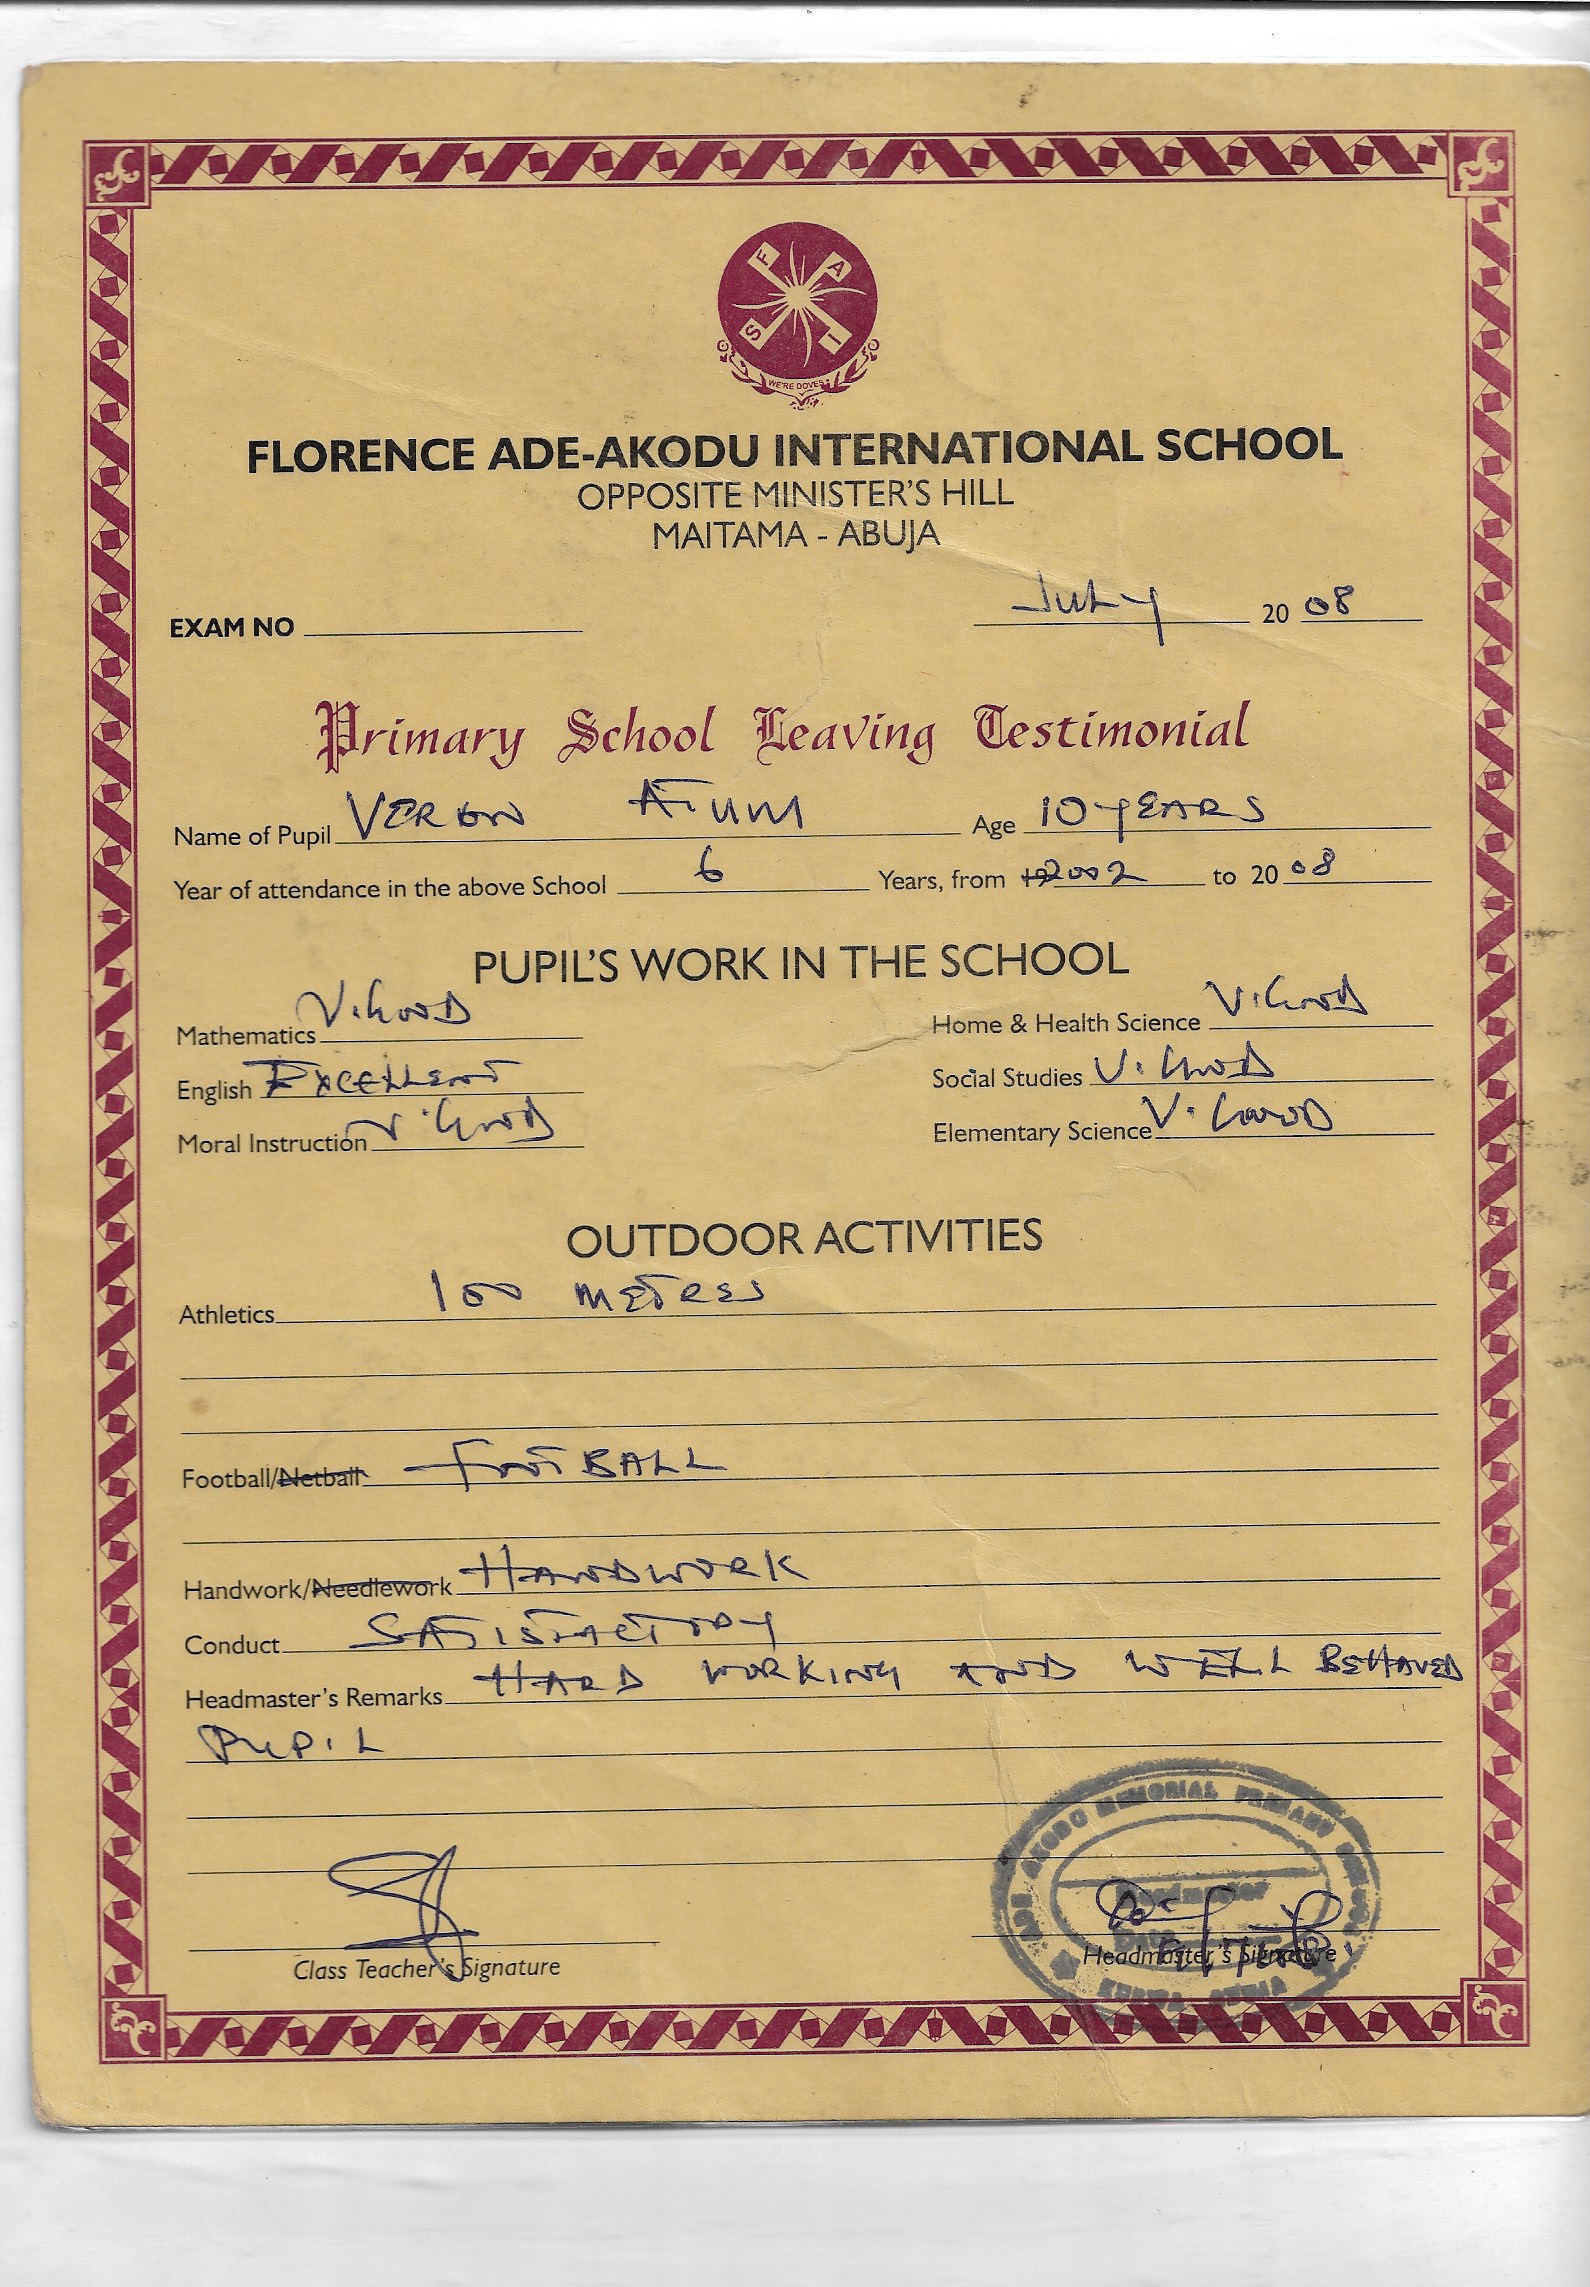 F A
S I
WE'RE DOVES
FLORENCE ADE-AKODU INTERNATIONAL SCHOOL
OPPOSITE MINISTER'S HILL
MAITAMA - ABUJA
EXAM NO JULY 2008
Primary School Leaving Testimonial
Name of Pupil VERON Age 10 YEARS
Year of attendance in the above School 6 Years, from 2002 to 2008
PUPIL'S WORK IN THE SCHOOL
Mathematics V. GOOD Home & Health Science V. GOOD
English EXCELLENT Social Studies V. GOOD
Moral Instruction V. GOOD Elementary Science V. GOOD
OUTDOOR ACTIVITIES
Athletics 100 METRES
Football/Netball FOOTBALL
Handwork/Needlework HANDWORK
Conduct SATISFACTORY
Headmaster's Remarks HARD WORKING AND WELL BEHAVED
PUPIL
ADE AKODU MEMORIAL PRIMARY SCHOOL
Headmaster
Class Teacher's Signature Headmaster's Signature
ABUJA